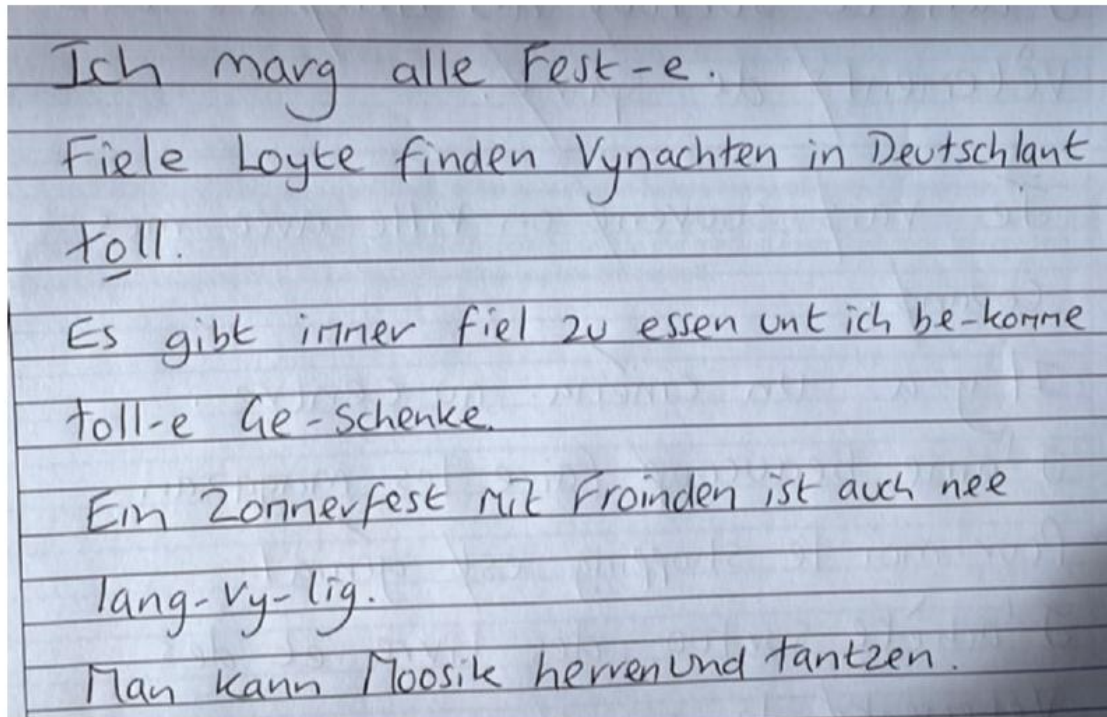 Ich marg alle Fest-e.
Fiele Loyte finden Vynachten in Deutschlant
toll.
Es gibt immer fiel zu essen unt ich be-komme
toll-e Ge-schenke.
Ein Zommerfest mit Froinden ist auch nee
lang-vy-lig.
Man kann Moosik herren und tantzen.